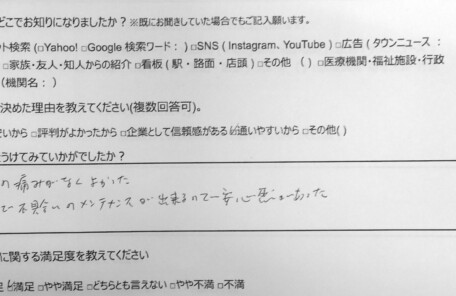 どこでお知りになりましたか？※既にお聞きしていた場合でもご記入願います。
ット検索 (□Yahoo! □Google 検索ワード： ) □SNS ( Instagram、YouTube ) □広告 ( タウンニュース ：
□家族・友人・知人からの紹介 □看板 ( 駅・路面・店頭 ) □その他 ( ) □医療機関・福祉施設・行政
(機関名： )
決めた理由を教えてください(複数回答可)。
いから □評判がよかったから □企業として信頼感がある ☑通いやすいから □その他( )
うけてみていかがでしたか？
の痛みがなくよかった
不具合のメンテナンスが出来るので安心感があった
に関する満足度を教えてください
足 ☑満足 □やや満足 □どちらとも言えない □やや不満 □不満